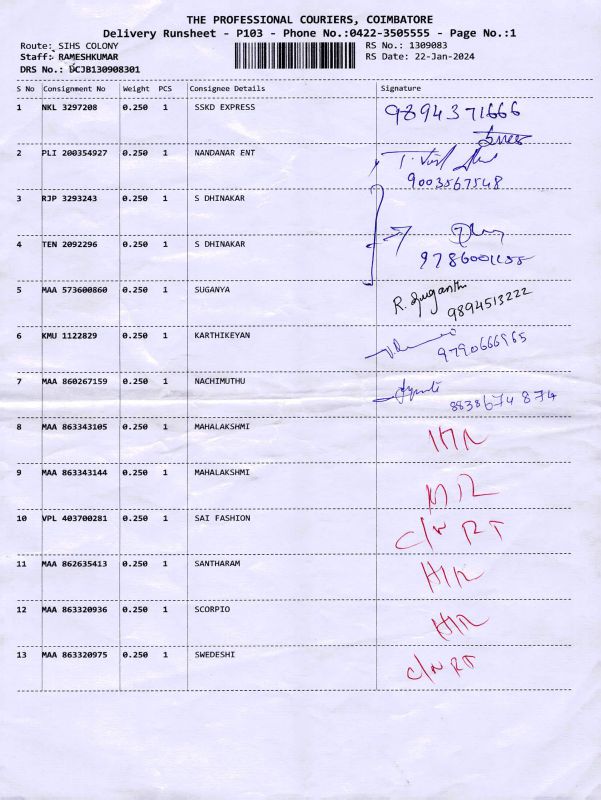 THE PROFESSIONAL COURIERS, COIMBATORE
Delivery Runsheet - P103 - Phone No.:0422-3505555 - Page No.:1
Route: SIHS COLONY RS No.: 1309083
Staff: RAMESHKUMAR RS Date: 22-Jan-2024
DRS No.: DCJB130908301
S No Consignment No Weight PCS Consignee Details Signature
1 NKL 3297208 0.250 1 SSKD EXPRESS 9894371666
2 PLI 200354927 0.250 1 NANDANAR ENT 9003567548
3 RJP 3293243 0.250 1 S DHINAKAR
4 TEN 2092296 0.250 1 S DHINAKAR
5 MAA 573600860 0.250 1 SUGANYA R. Suganthi 9894513222
6 KMU 1122829 0.250 1 KARTHIKEYAN 9790666965
7 MAA 860267159 0.250 1 NACHIMUTHU 8838674874
8 MAA 863343105 0.250 1 MAHALAKSHMI
9 MAA 863343144 0.250 1 MAHALAKSHMI
10 VPL 403700281 0.250 1 SAI FASHION C/N RT
11 MAA 862635413 0.250 1 SANTHARAM
12 MAA 863320936 0.250 1 SCORPIO
13 MAA 863320975 0.250 1 SWEDESHI C/N RT